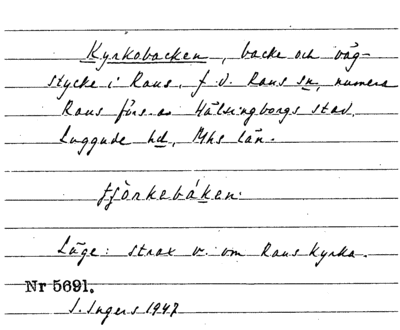 Kyrkobacken, backe och väg-
stycke i Raus, f. d. Raus sn, numera
Raus förs. av Hälsingborgs stad,
Luggude hd, Mhs län.
tjörkebáken.
Läge: strax v. om Raus kyrka.
Nr 5691.
I. Ingers 1947